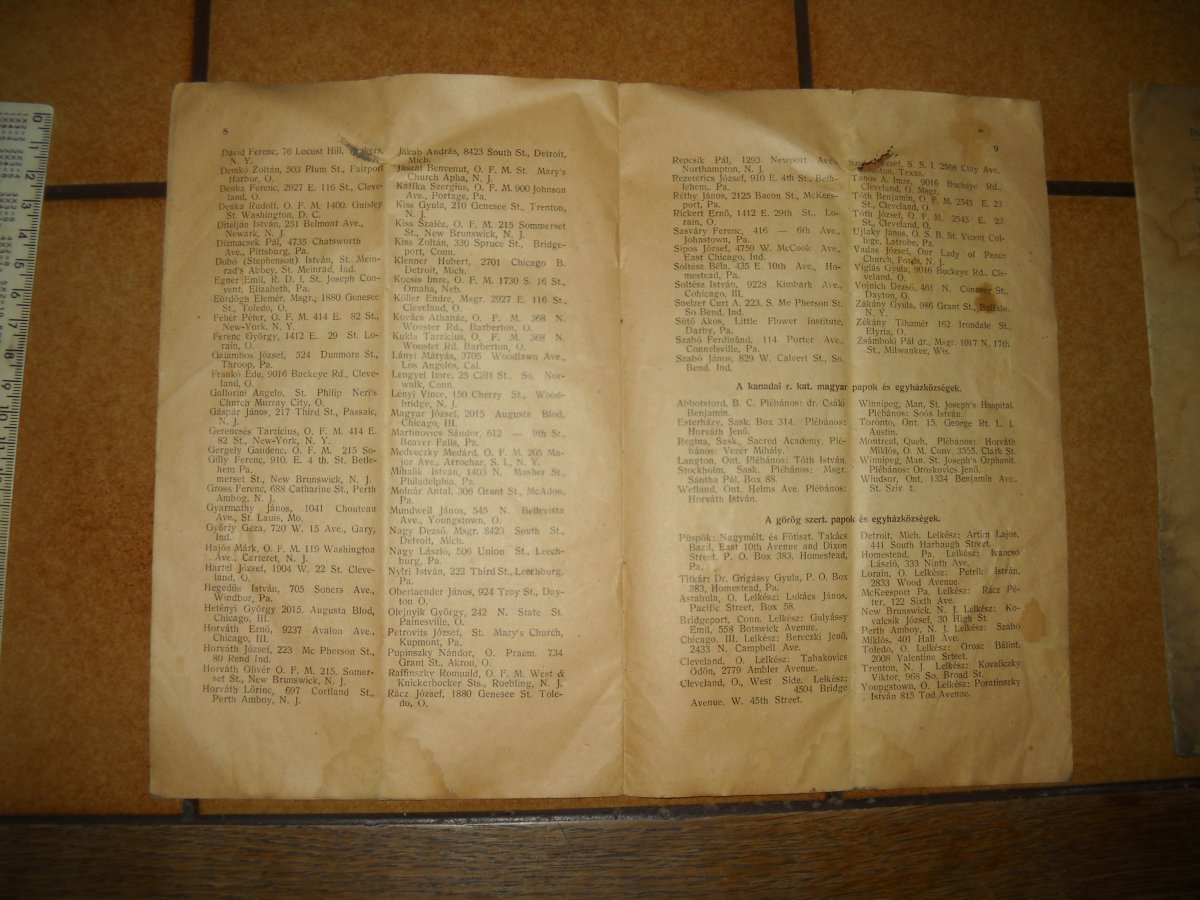 8
Dávid Ferenc, 76 Locust Hill,
N. Y.
Demkó Zoltán, 503 Plum St., Fairport
Harbor, O.
Denka Ferenc, 2927 E. 116 St., Cleve-
land, O.
Denka Rudolf, O. F. M. 1400. Quisley
St. Washington, D. C.
Ditelján István, 251 Belmont Ave.,
Newark, N. J.
Dizmacsek Pál, 4735 Chatsworth
Ave., Pittsburg, Pa.
Dobó (Stephenson) István, St. Mein-
rad's Abbey, St. Meinrad, Ind.
Egner Emil, R. D. I. St. Joseph Con-
vent, Elizabeth, Pa.
Eördögh Elemér, Msgr., 1880 Genesee
St., Toledo, O.
Fehér Péter, O. F. M. 414 E. 82 St.,
New-York, N. Y.
Ferenc György, 1412 E. 29 St. Lo-
rain, O.
Galambos József, 524 Dunmore St.,
Throop, Pa.
Frankó Ede, 9016 Buckeye Rd., Cleve-
land, O.
Gallorini Angelo, St. Philip Neri's
Church Murray City, O.
Gáspár János, 217 Third St., Passaic,
N. J.
Gerencsés Tarzicius, O. F. M. 414 E.
82 St., New-York, N. Y.
Gergely Gaudenc, O. F. M. 215 So-
Gilly Ferenc, 910. E. 4 th. St. Betle-
hem Pa.
merset St., New Brunswick, N. J.
Gross Ferenc, 688 Catharine St., Perth
Ambog, N. J.
Gyarmathy János, 1041 Chouteau
Ave., St. Lauis, Mo,
Győrfy Géza, 720 W. 15 Ave., Gary,
Ind.
Hajós Márk, O. F. M. 119 Washington
Ave., Carteret, N. J.
Hartel József, 1904 W. 22 St. Cleve-
land, O,
Hegedüs István, 705 Soners Ave.,
Windbor, Pa.
Hetényi György 2015. Augusta Blod,
Chicago, III.
Horváth Ernő, 9237 Avalon Ave.,
Chicago, III.
Horváth József, 223 Mc Pherson St.,
80 Rend Ind.
Horváth Olivér O. F. M. 215. Somer-
set St., New Brunswick, N. J.
Horváth Lőrinc, 697 Cortland St.,
Perth Amboy, N. J.
Jakab András, 8423 South St., Detroit,
Mich.
Jászai Benvenut, O. F. M. St. Mary's
Church Alpha, N. J.
Kaffka Szergius, O. F. M. 900 Johnson
Ave., Portage, Pa.
Kiss Gyula, 210 Genesee St., Trenton,
N. J.
Kiss Szaléz, O. F. M. 215 Sommerset
St., New Brunswick, N. J.
Kiss Zoltán, 330 Spruce St., Bridge-
port, Conn.
Klenner Hubert, 2701 Chicago B.
Detroit, Mich.
Kocsis Imre, O. F. M. 1730 S. 16 St.,
Omaha, Neb.
Köller Endre, Msgr. 2927 E. 116 St.,
Cleveland, O.
Kovács Athanáz, O. F. M. 368 N.
Wooster Rd., Barberton, O.
Kukla Tarzicius, O. F. M. 368 N.
Wooster Rd. Barberton, O.
Lányi Mátyás, 3705 Woodlawn Ave.,
Los Angeles, Cal.
Lengyel Imre, 25 Cliff St., So. Nor-
walk, Conn.
Lenyi Vince, 150 Cherry St., Wood-
bridge, N. J.
Magyar József, 2015 Augusta Blod,
Chicago, III.
Martinovics Sándor, 612 — 9th St.,
Beaver Falls, Pa.
Medveczky Medárd, O. F. M. 205 Ma-
jor Ave., Arrochar, S. I., N. Y.
Mihalik István, 1403 N. Masher St.,
Philadelphia, Pa.
Molnár Antal, 306 Grant St., McAdoo,
Pa.
Mundweil János, 545 N. Bellevista
Ave., Youngstown, O.
Nagy Dezső, Msgr. 8423 South St.,
Detroit, Mich.
Nagy László, 506 Union St., Leech-
burg, Pa.
Nyíri István, 222 Third St., Leechburg,
Pa.
Oberlaender János, 924 Troy St., Day-
ton O.
Olejnyik György, 242 N. State St.
Painesville, O.
Petrovits József, St. Mary's Church,
Kupmont, Pa.
Pupinszky Nándor, O. Praem. 734
Grant St., Akron, O.
Raffinszky Romuald, O. F. M. West &
Knickerbocker Sts., Roebling, N. J.
Rácz József, 1880 Genesee St. Tole-
do, O.
9
Repcsik Pál, 1293 Newport Ave
Northampton, N. J.
Rezeterics József, 910 E. 4th St., Beth-
lehem., Pa.
Réthy János, 2125 Bacon St., McKees-
port, Pa.
Rickert Ernő, 1412 E. 29th St., Lo-
rain, O.
Sasváry Ferenc, 416 — 6th Ave.,
Johnstown, Pa.
Sipos József, 4759 W. McCook Ave.,
East Chicago, Ind.
Soltész Béla, 435 E. 10th Ave., Ho-
mestead, Pa.
Soltész István, 9228 Kimbark Ave.,
Cohicago, III.
Snelzer Curt A. 223. S. Mc Pherson St.
So Bend, Ind.
Sütő Ákos, Little Flower Institute,
Darby, Pa.
Szabó Ferdinánd, 114 Porter Ave.,
Connelsville, Pa.
Szabó János, 829 W. Calvert St., So.
Bend. Ind.
József, S. S. I. 2508 Clay Ave,
Texas.
Tanos A. Imre, 9016 Buckeye Rd.,
Cleveland, O. Msgr.
Tóth Benjamin, O. F. M. 2543 E. 23
St., Cleveland, O.
Tóth József, O. F. M. 2543 E. 23
St., Cleveland, O.
Ujlaky János, O. S. B. St. Vicent Col-
lege, Latrobe, Pa.
Vadas József, Our Lady of Peace
Church, Fords, N. J.
Viglás Gyula, 9016 Buckeye Rd., Cle-
veland, O.
Vojnich Dezső, 461 N. Conover St.,
Dayton, O.
Zákány Gyula, 986 Grant St., Buffalo,
N. Y.
Zékány Tihamér 162 Irondale St.,
Elyria, O.
Zsámboki Pál dr., Msgr. 1017 N. 17th
St., Milwankee, Wis.
A kanadai r. kat. magyar papok és egyházközségek.
Abbotsford, B. C. Plébános: dr. Csáki
Benjamin.
Esterházy, Sask. Box 314. Plébános:
Horváth Jenő.
Regina, Sask., Sacred Academy. Plé-
bános: Vezér Mihály.
Langton, Ont. Plébános: Tóth István.
Stockholm, Sask. Plébános: Msgr.
Sántha Pál, Box 88.
Wetland, Ont. Helms Ave. Plébános:
Horváth István.
Winnipeg, Man, St. Joseph's Hospital.
Plébános: Soós István.
Toronto, Ont. 15. George Rt. L. I.
Austin.
Montreal, Queb. Plébános: Horváth
Miklós, O. M. Conv. 3555. Clark St.
Winnipeg, Man. St. Joseph's Orphanit.
Plébános: Oroskovics Jenő.
Windsor, Ont. 1334 Benjamin Ave.,
St. Sziv. t.
A görög szert. papok és egyházközségek.
Püspök: Nagymélt. és Főtiszt. Takács
Bazil, East 10th Avenue and Dixon
Street. P. O. Box 383, Homestead,
Pa.
Titkár: Dr. Grigássy Gyula, P. O. Box
383, Homestead, Pa.
Astabula, O. Lelkész: Lukács János,
Pacific Street, Box 58.
Bridgeport, Conn. Lelkész: Gulyássy
Emil, 558 Botswick Avenue.
Chicago, III. Lelkész: Bereczki Jenő,
2433 N. Campbell Ave.
Cleveland, O. Lelkész: Tabakovics
Ödön, 2779 Ambler Avenue.
Cleveland, O., West Side. Lelkész:
4504 Bridge
Avenue. W. 45th Street.
Detroit, Mich. Lelkész: Artim Lajos,
441 South Harbaugh Street.
Homestead, Pa. Lelkész: Iváncsó
László, 333 Ninth Ave.
Lorain, O. Lelkész: Petrik István,
2833 Wood Avenue.
McKeesport Pa. Lelkész: Rácz Pé-
ter, 122 Sixth Ave.
New Brunswick, N. J. Lelkész: Ko-
valcsik József, 30 High St.
Perth Amboy, N. J. Lelkész: Szabó
Miklós, 401 Hall Ave.
Toledo, O. Lelkész: Orosz Bálint,
2008 Valentine Srteet.
Trenton, N. J. Lelkész: Kovaliczky
Viktor, 968 So. Broad St.
Youngstown, O. Lelkész: Poratinszky
István 815 Tod Avenue.